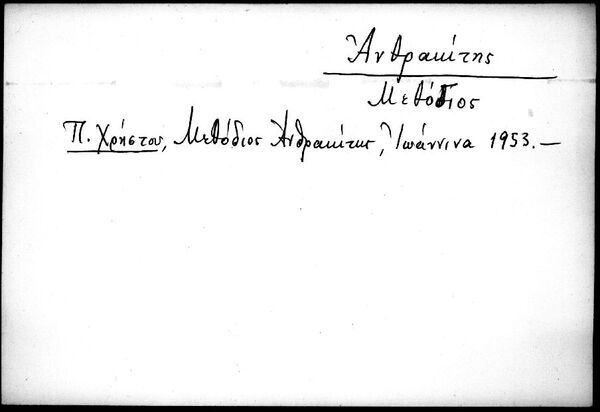 Ἀνθρακίτης
Μεθόδιος
Π. Χρήστου, Μεθόδιος Ἀνθρακίτης, Ἰωάννινα 1953.—